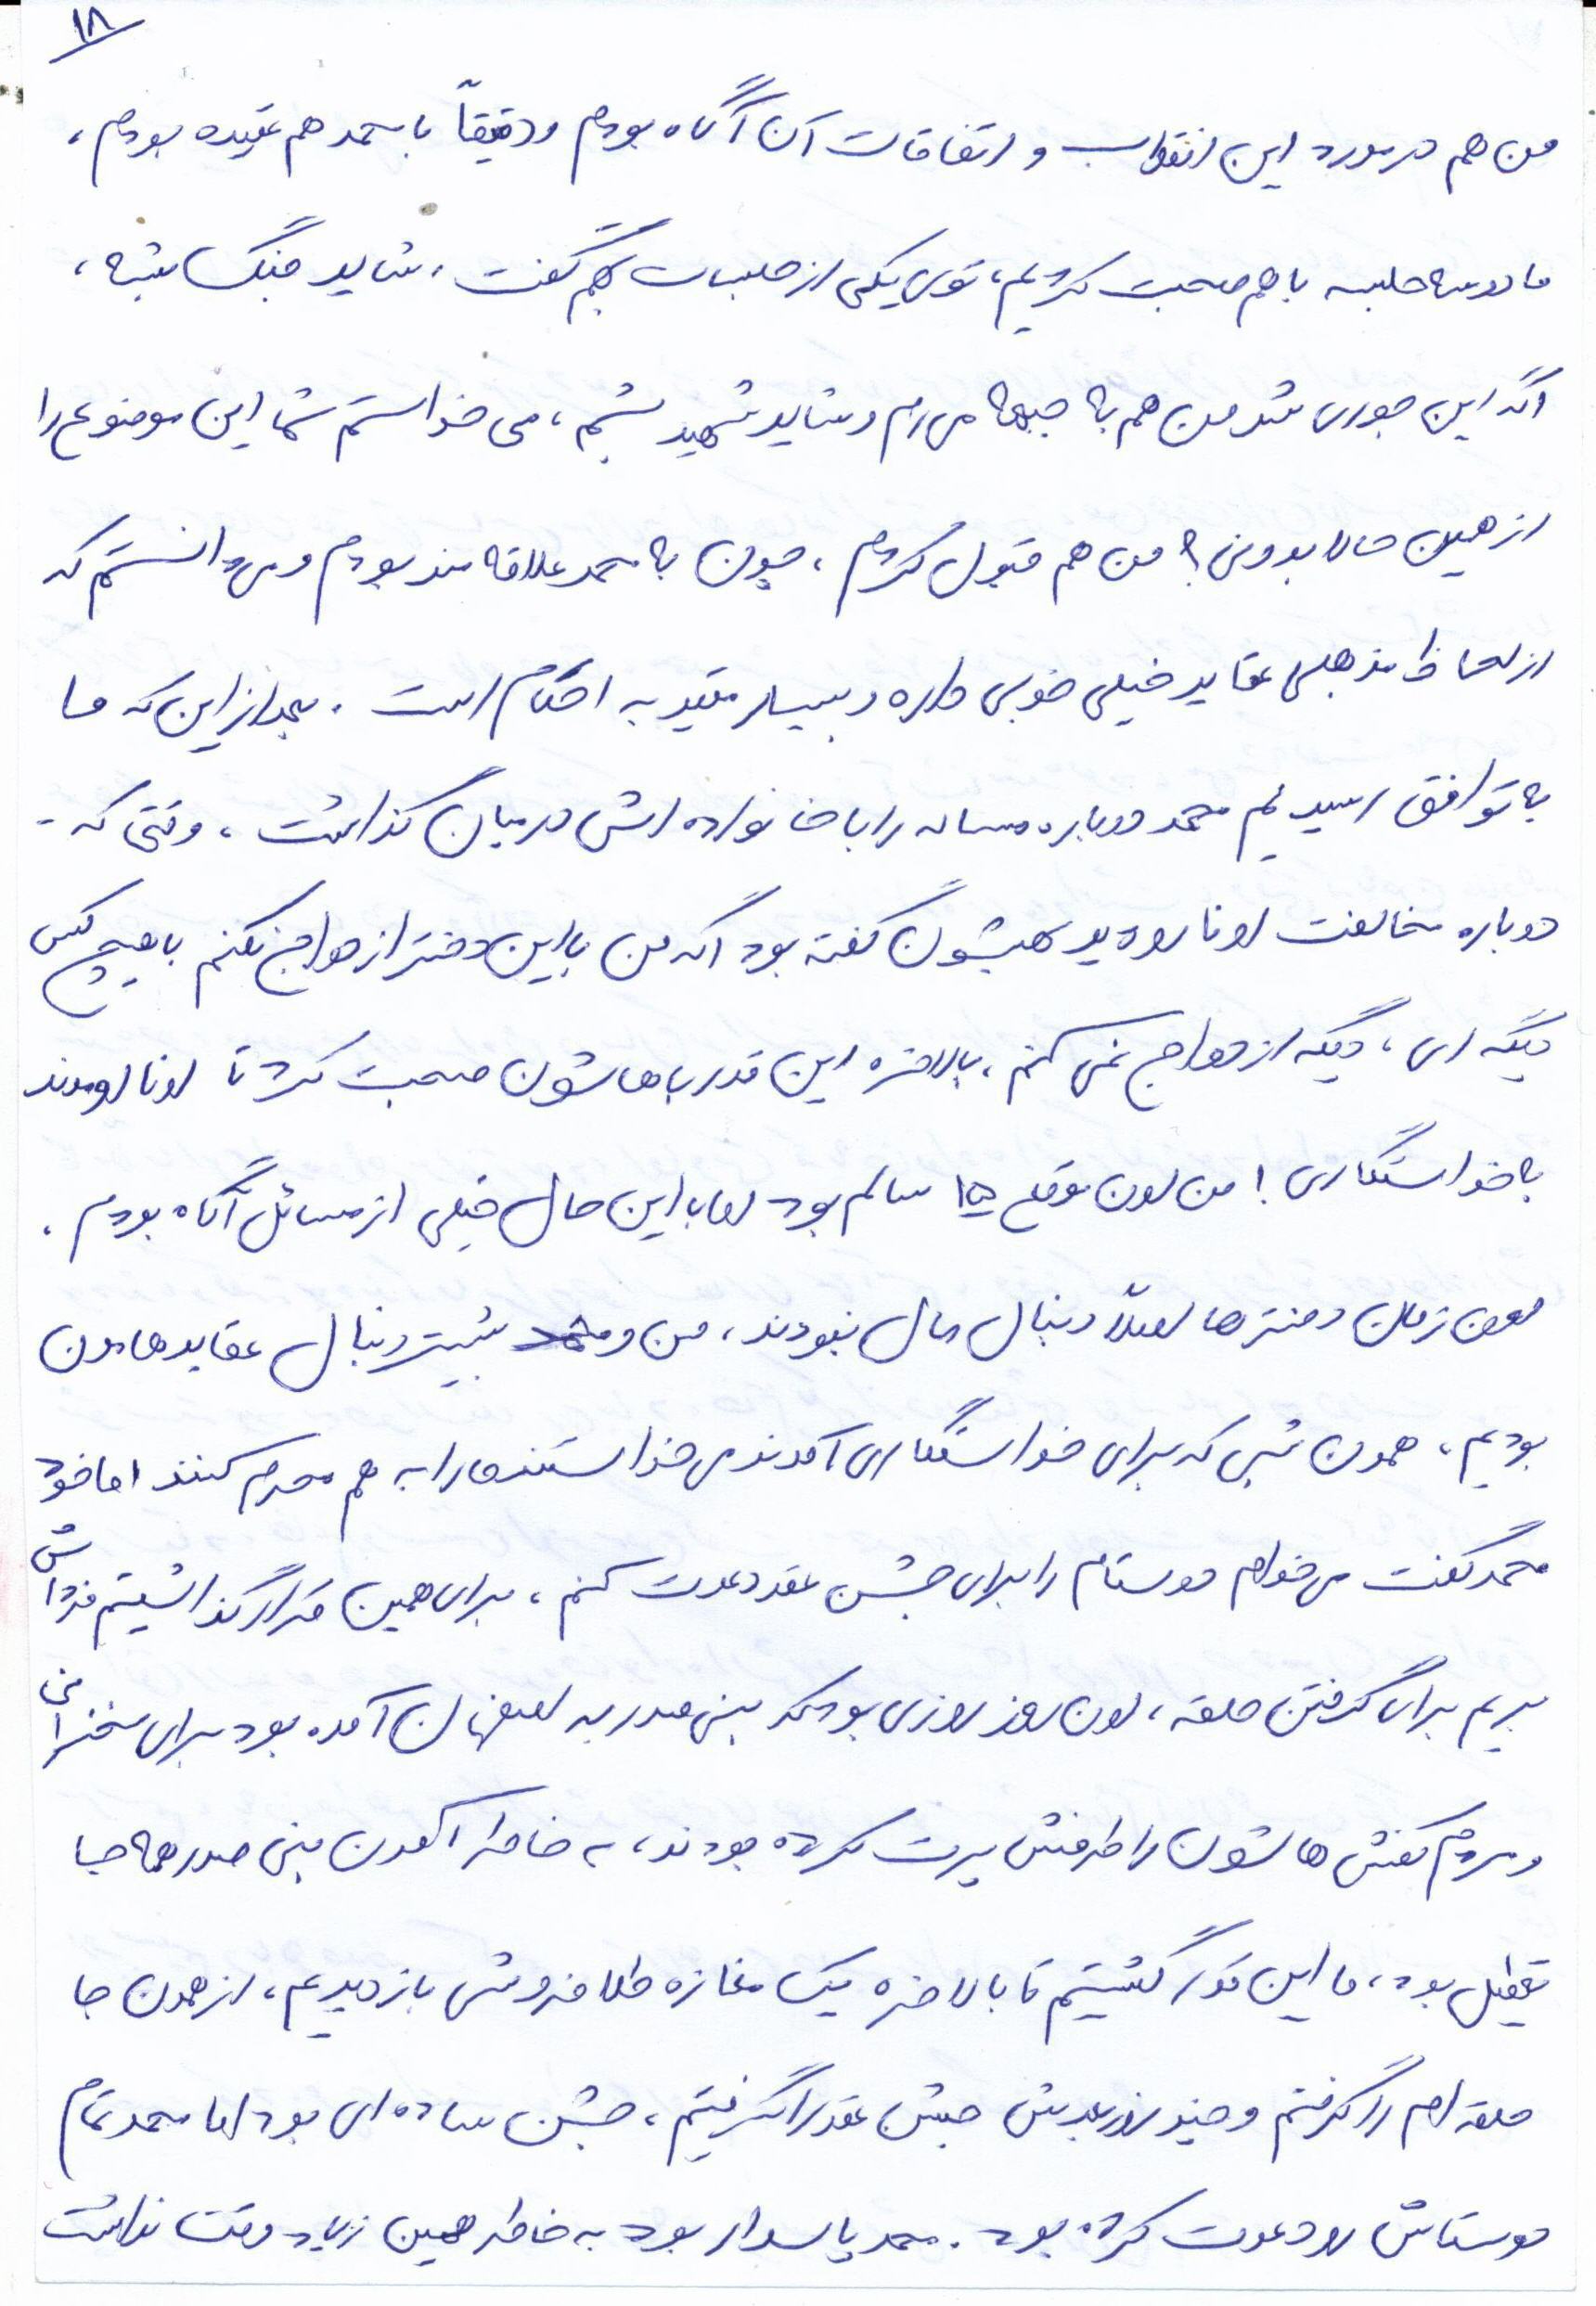 ۱۸
من هم در مورد این انقلاب و اتفاقات آن آگاه بودم و دقیقاً با محمد هم عقیده بودم،
ما دو سه جلسه با هم صحبت کردیم، توی یکی از جلسات بهم گفت، شاید جنگ بشه،
اگه این جوری شد من هم به جبهه می رم و شاید شهید بشم، می خواستم شما این موضوع را
از همین حالا بدونی؟ من هم قبول کردم، چون به محمد علاقه مند بودم و می دانستم که
از لحاظ مذهبی عقاید خیلی خوبی داره و بسیار مقید به احکام است. بعد از این که ما
به توافق رسیدیم محمد دوباره مساله را با خانواده اش در میان گذاشت، وقتی که -
دوباره مخالفت اونا رو دید بهشون گفته بود اگه من با این دختر ازدواج نکنم با هیچ کس
دیگه ای، دیگه ازدواج نمی کنم، بالاخره این قدر باهاشون صحبت کرد تا اونا اومدند
به خواستگاری! من اون موقع ۱۵ سالم بود اما با این حال خیلی از مسائل آگاه بودم.
اون زمان دخترها اصلاً دنبال مال نبودند، من و محمد بیشتر دنبال عقایدهامون
بودیم، همون شبی که برای خواستگاری آمدند می خواستند ما را به هم محرم کنند اما خود
محمد گفت می خوام دوستام را برای جشن عقد دعوت کنم، برای همین قرار گذاشتیم فرداش
بریم برای گرفتن حلقه، اون روز روزی بود که بنی صدر به اصفهان آمده بود برای سخنرانی
و مردم کفش هاشون را طرفش پرت کرده بودند، به خاطر آمدن بنی صدر همه جا
تعطیل بود، ما این قدر گشتیم تا بالاخره یک مغازه طلا فروشی باز دیدیم، از همون جا
حلقه ام را گرفتم و چند روز بعدش جشن عقد را گرفتیم، جشن ساده ای بود اما محمد تمام
دوستاش رو دعوت کرده بود. محمد پاسدار بود به خاطر همین زیاد وقت نداشت